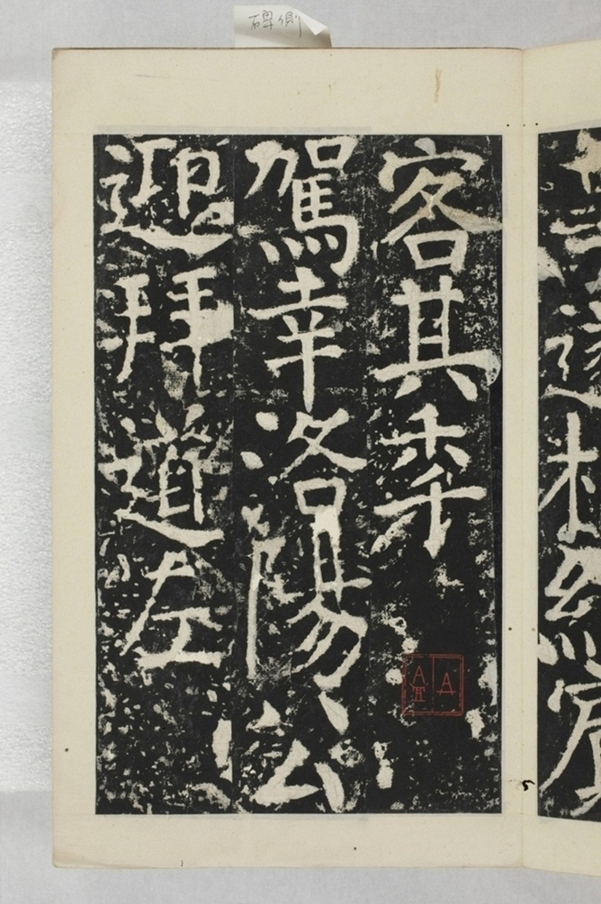 碑側
客其秊
駕幸洛陽公
迎拜道左